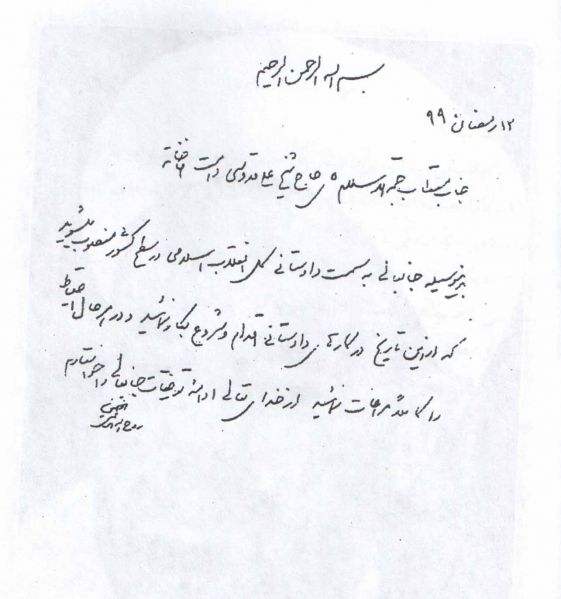 بسم الله الرحمن الرحیم
۱۲ رمضان ۹۹
جناب مستطاب حجة الاسلام آقای حاج شیخ علی قدوسی دامت افاضاته
بدینوسیله جنابعالی به سمت دادستانی کل انقلاب اسلامی در سطح کشور منصوب میشوید
که از این تاریخ در کارهای دادستانی اقدام و شروع بکار نمائید و در هر حال احتیاط
را کاملا مراعات نمائید از خدای تعالی ادامه توفیقات جنابعالی را خواستارم
روح الله الموسوی الخمینی